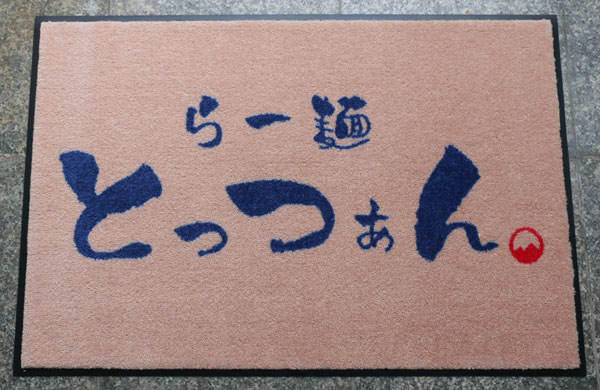 らー麺
とっつぁん